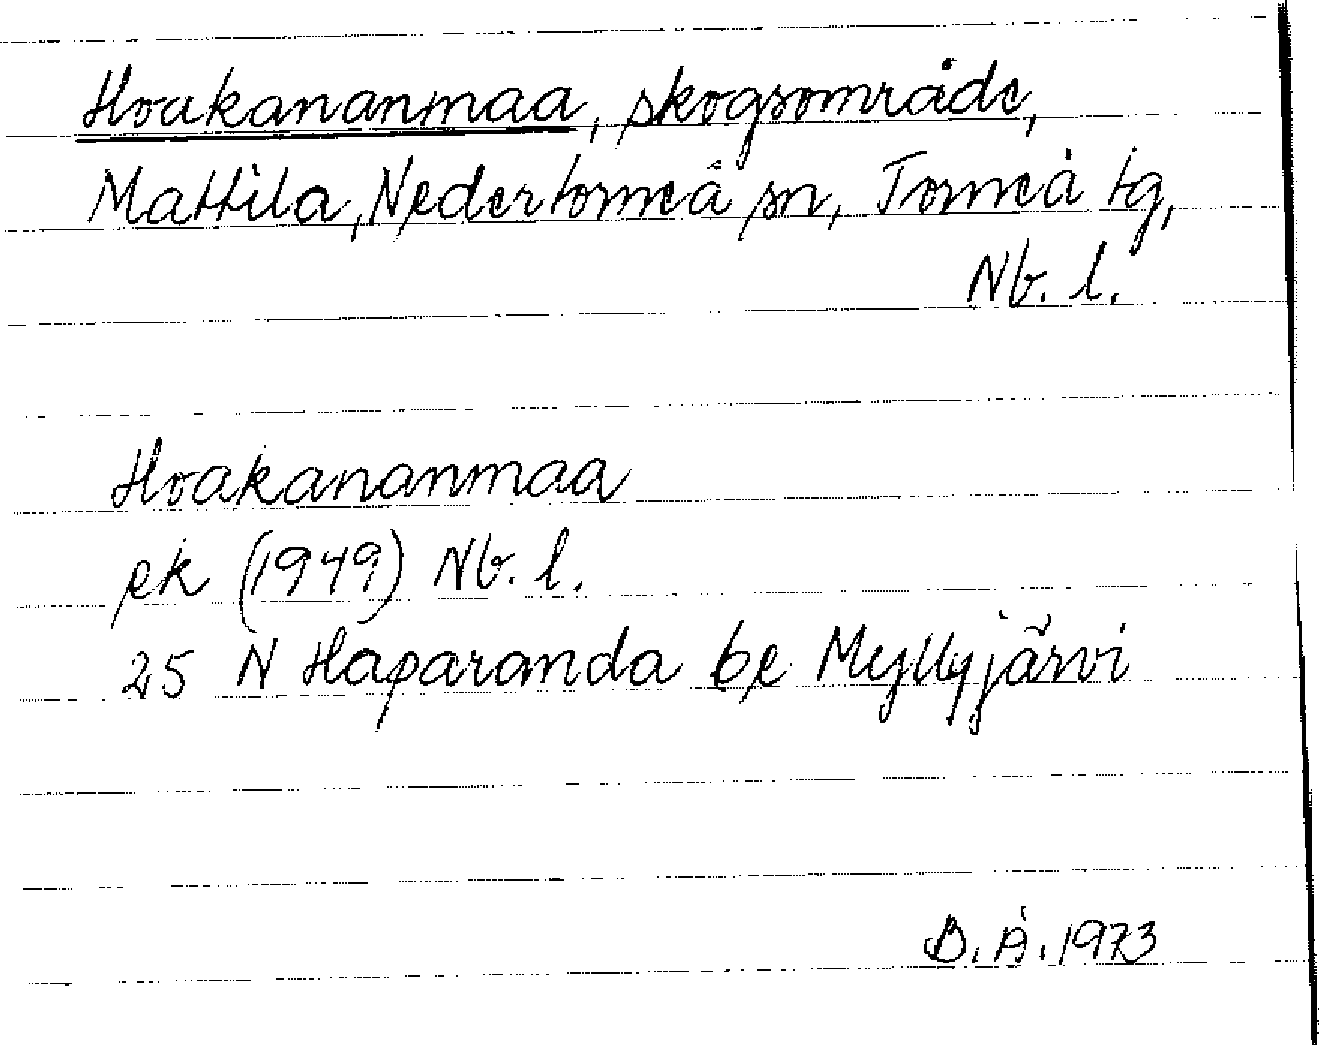 Hoakananmaa, skogsområde,
Mattila, Nedertorneå sn, Torneå tg,
Nb. l.
Hoakananmaa
ek (1949) Nb. l.
25 N Haparanda be Myllyjärvi
B. Å. 1973